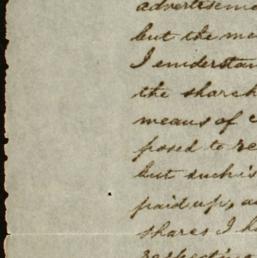 advertiseme
but the me
I understan
the shareh
means of c
posed to re
but such is
paid up, a
shares I h
respecting